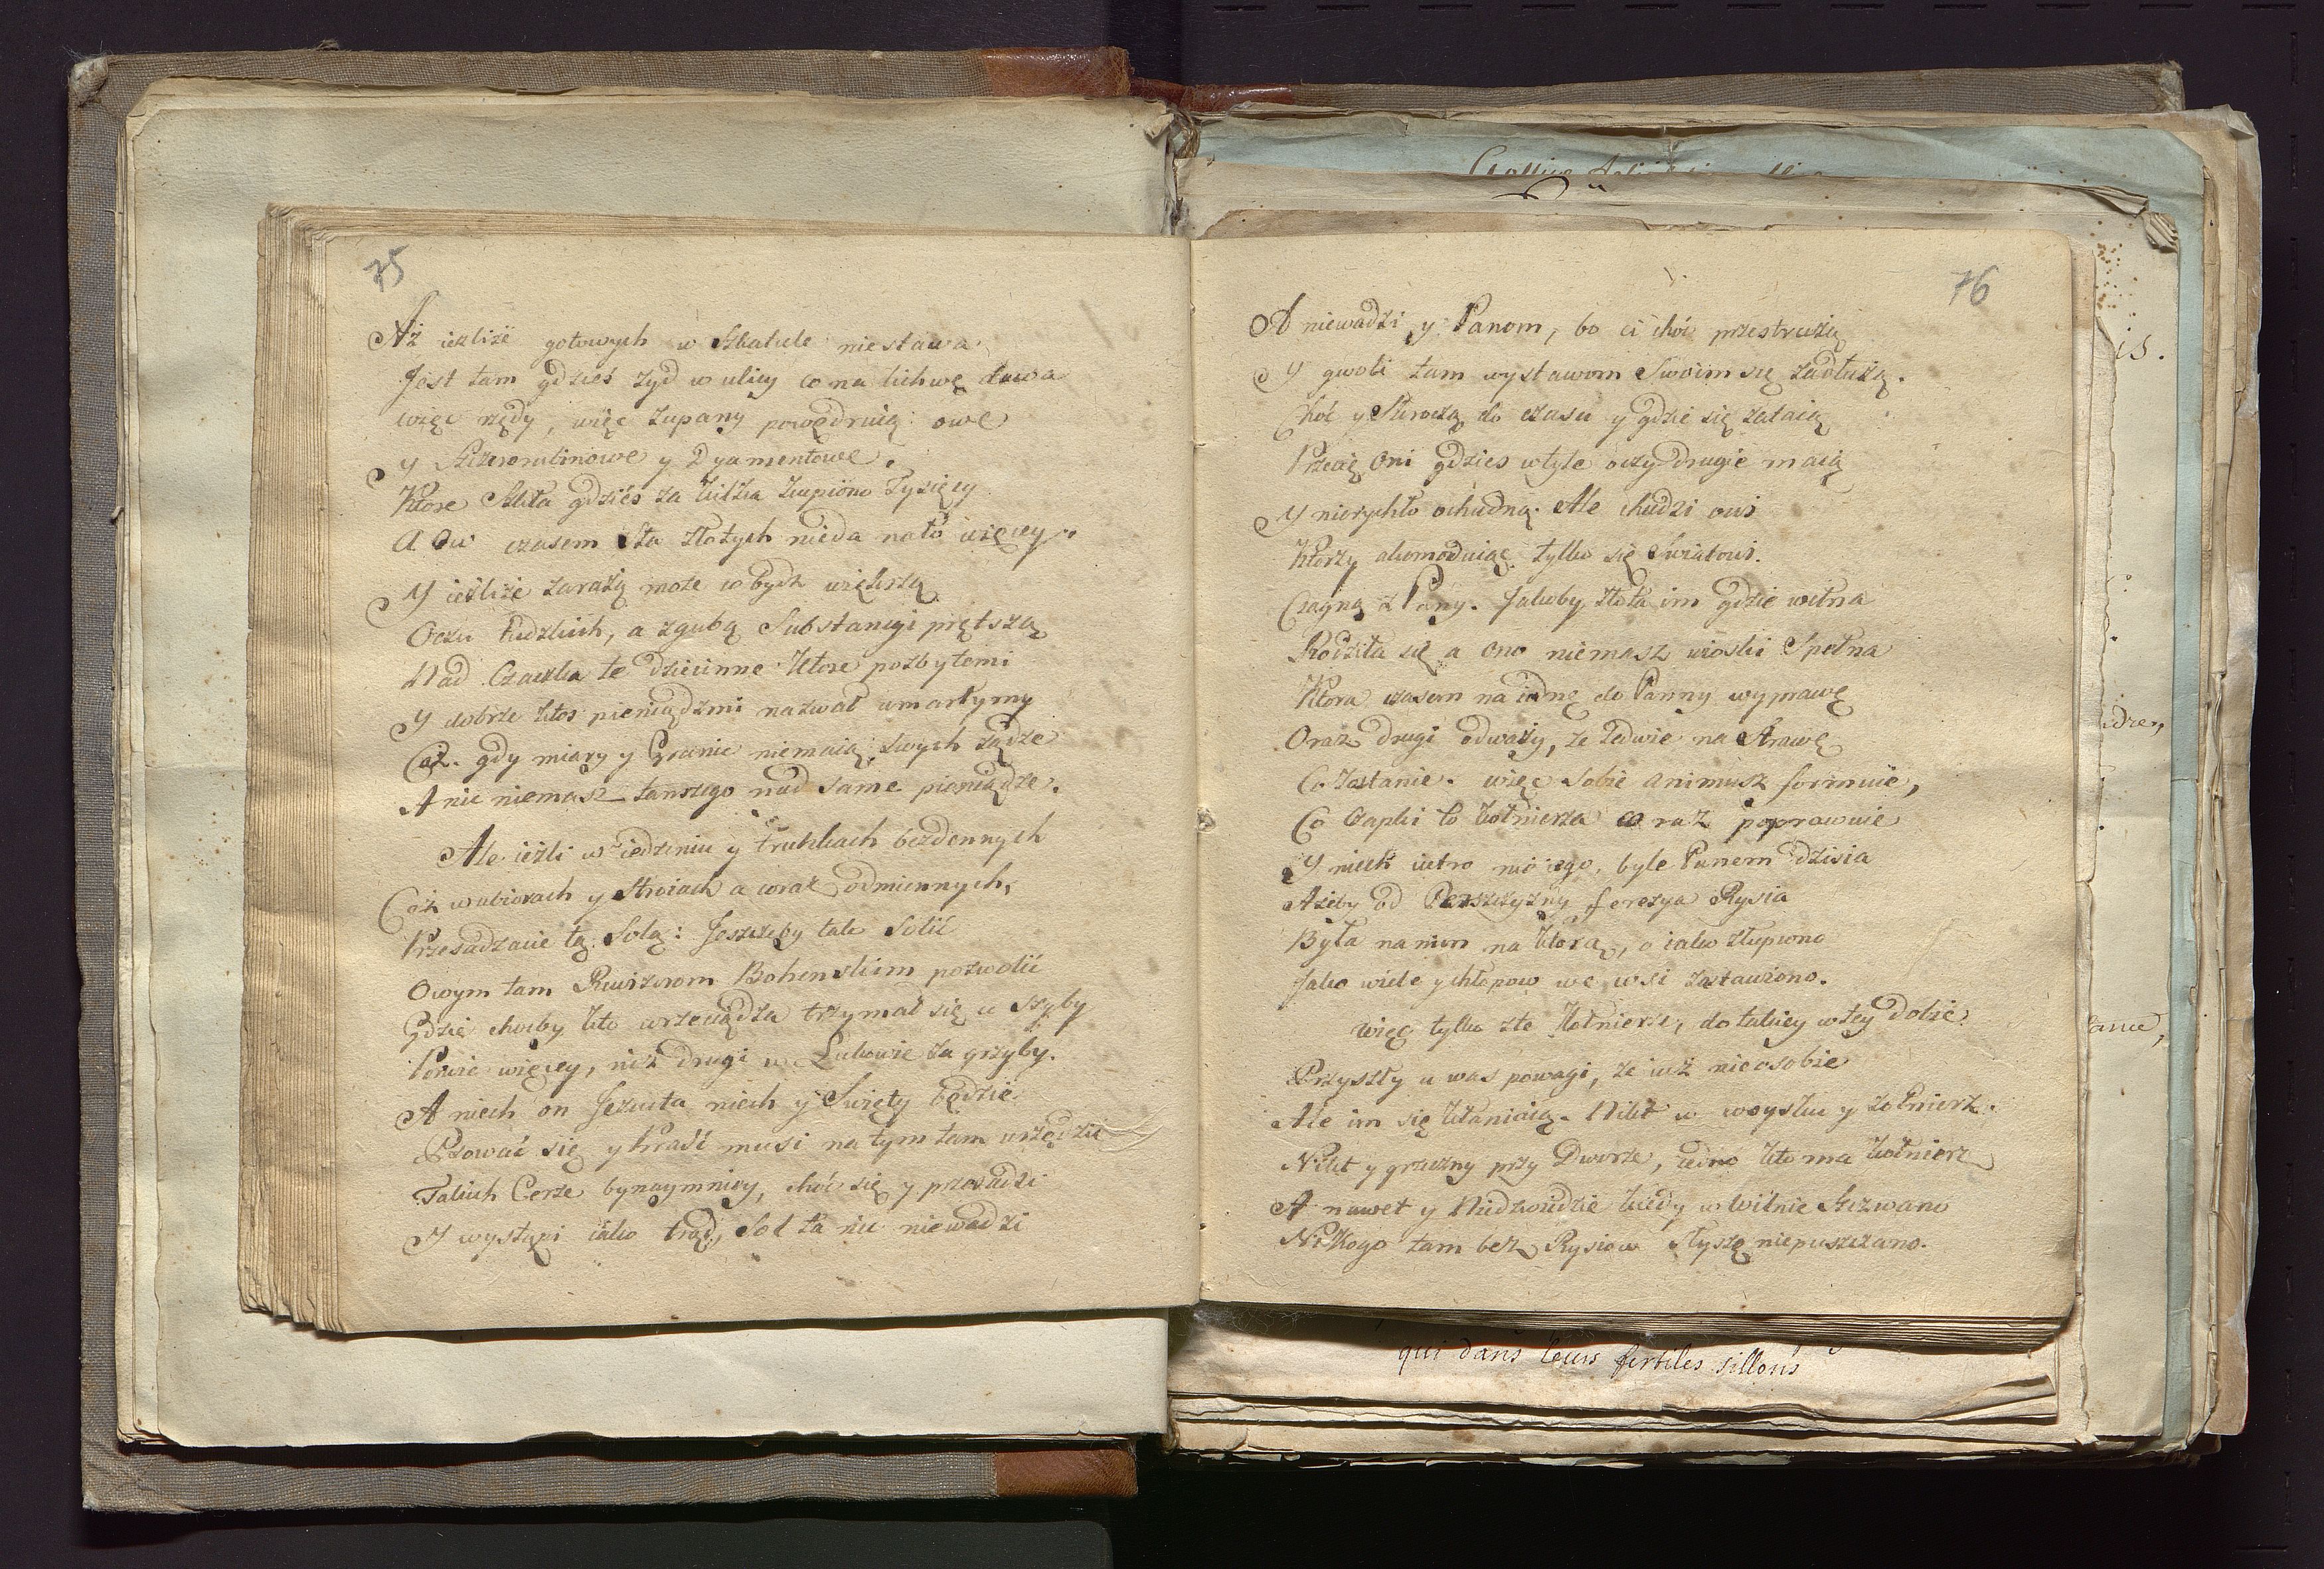 75
Aż ieżliże gotowych w Szkatule niestawa
Jest tam gdzieś żyd w ulicy co na lichwę dawa
więc rzędy, więc żupany powędruią owe
y Szkarmutinowe y Dyamentowe.
Ktore Szkła gdzieś za kilka kupiono Tysięcy
A Ow czasem Sta złotych nieda nato więcey.
Y ieśliże zarazą może co bydź większą
Oczu ludzkich, a zgubą Substancyi prętszą
Nad Czaczka te dziecinne ktore pozbytemi
Y dobrze ktos pieniądzmi nazwał umarłymy
Coż. gdy miary y Granic niemaią swych żądze
A nic niemasz tanszego nad same pieniądze.
Ale ieżli w iedzeniu y Trunkach bezdennych
Coż w ubiorach y Stroiach a coraz odmiennych,
Przesadzacie tą Solą: Jeszczeby tak Solić
Owym tam Rewizorom Bohenskim pozwolić
Gdzie choćby kto wrzeciądza trzymał się u szyby
Powie więcey, niż drugi w Łukowie za grzyby.
A niech on Jezuita niech y Swięty będzie
Psować się y kraść musi na tym tam urzędzie
Takich Cerze bynaymniey, choć się y przesadzi
Y wystąpi iako trąd, Sol ta nic niewadzi
76
A niewadzi y Panom, bo ci choć przestrużą
Y gwoli tam wystawom Swoim się zadłużą.
Choć y Stracą do czasu y gdzie się zataią
Przecię Oni gdzies wtyle oczy drugie maią
Y nierychło ochudną. Ale chudzi owi
Ktorzy akomoduiąc tylko się Swiatowi.
Ciągną z Pany. Jakoby złota im gdzie wełna
Rodziła się a Ono niemasz wioski Spełna
Ktora czasem na iednę do Panny wyprawę
Oraz drugi odważy, że ledwie na Strawę
Co zostanie. więc sobie animusz formuie,
Co Czapki to kołnierza co raz poprawuie
Y niech iutro nic iego, byle Panem dzisia
Ażeby od Perszczyzny ferezya Rysia
Była na nim na ktorą, o iako złupiono
Jako wiele y chłopow we wsi zastawiono.
więc tylko złe kołnierze, do takiey wtey dobie
Przyszły u was powagi, że iuż nie osobie
Ale im się kłaniaią. Nikt w woysku y żołnierz.
Nikt y grzeczny przy Dworze, iedno kto ma kołnierz
A nawet y Niedzwiedzie kiedy w Wilnie Szczwano
Nikogo tam bez Rysiow słyszę niepuszczano.
qui dans leurs fertiles sillons
is.